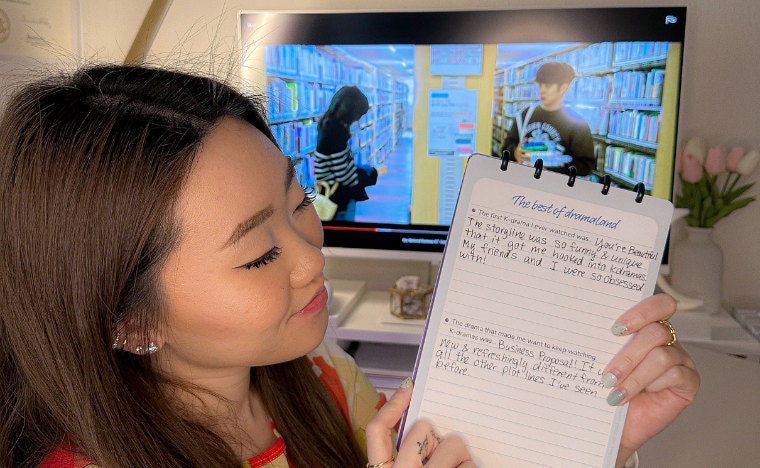 The best of dramaland
The first K-drama I ever watched was: You're Beautiful
The storyline was so funny & unique
that it got me hooked into kdramas.
My friends and I were so obsessed
with!
The drama that made me want to keep watching
K-dramas was: Business Proposal! It
new & refreshingly different from
all the other plot lines I've seen
before.